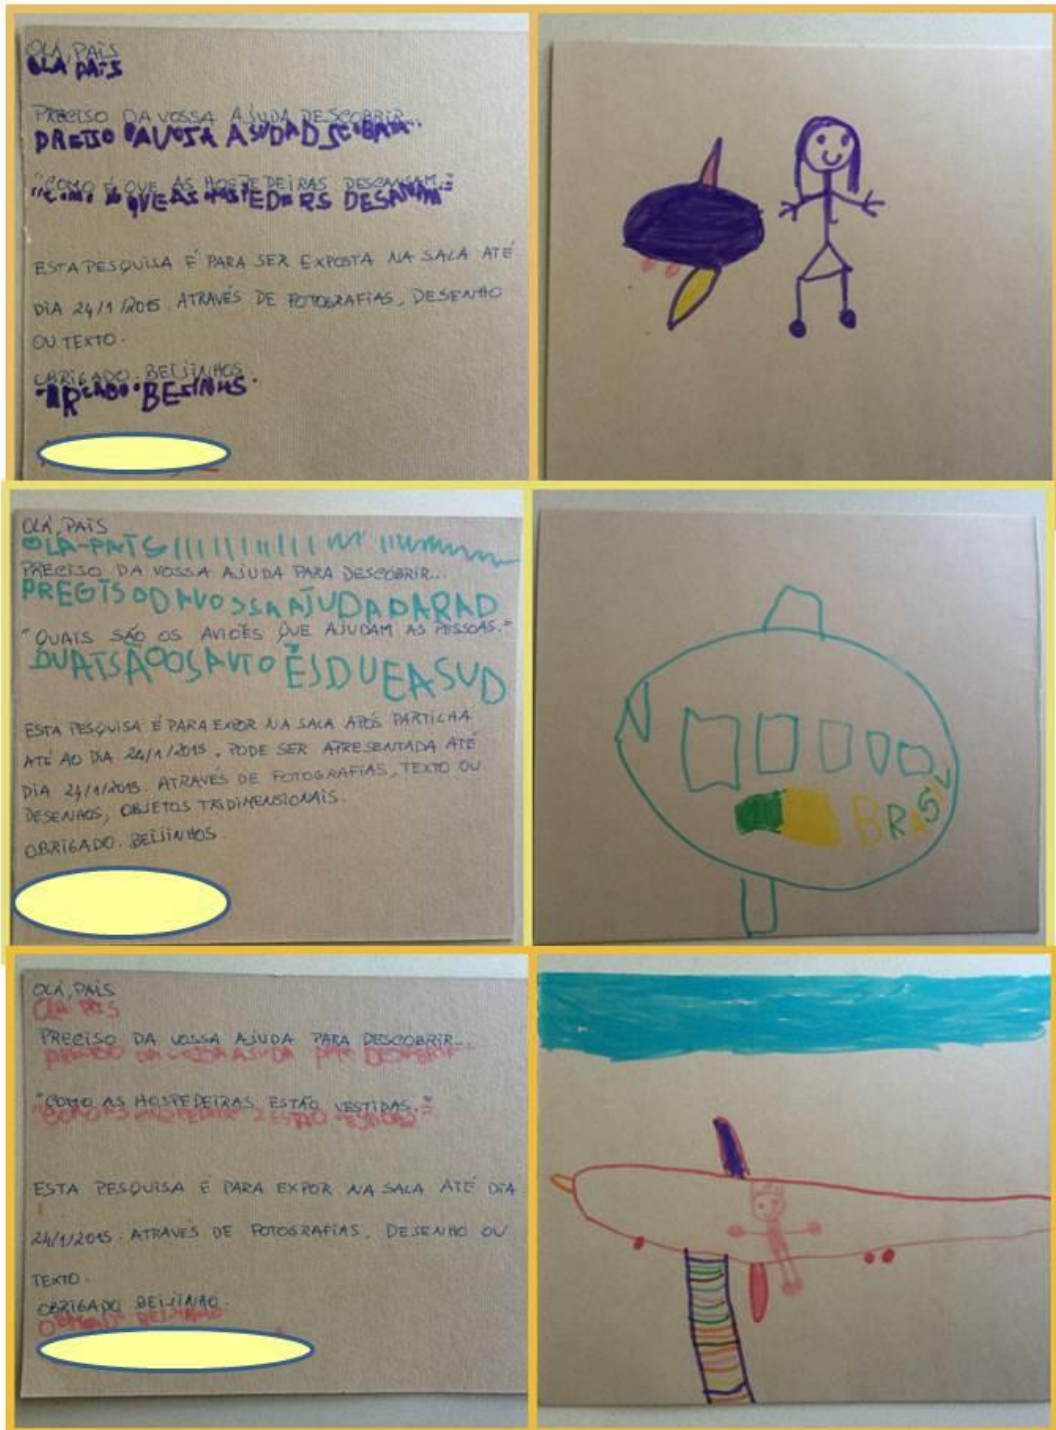 OLÁ, PAIS
OLA PAIS
PRECISO DA VOSSA AJUDA DESCOBRIR...
PRETSO DAVOSA ASUDAD SCOBRIR...
"COMO É QUE AS HOSPEDEIRAS DESCANSAM."
ESTA PESQUISA É PARA SER EXPOSTA NA SALA ATÉ
DIA 24/1/2015. ATRAVÉS DE FOTOGRAFIAS, DESENHO
OU TEXTO.
OBRIGADO. BEIJINHOS.
OLÁ, PAIS
OLÁ-PAIS
PRECISO DA VOSSA AJUDA PARA DESCOBRIR...
PREGISODAVOSSAAJUDADARAD
"QUAIS SÃO OS AVIÕES QUE AJUDAM AS PESSOAS."
DUATSÃOOSAVTOÊSDUEASUD
ESTA PESQUISA É PARA EXPOR NA SALA APÓS PARTILHA
ATÉ AO DIA 24/1/2015. PODE SER APRESENTADA ATÉ
DIA 24/1/2015. ATRAVÉS DE FOTOGRAFIAS, TEXTO OU
DESENHOS, OBJETOS TRIDIMENSIONAIS.
OBRIGADO. BEIJINHOS.
BRASIL
OLÁ, PAIS
OLA PAIS
PRECISO DA VOSSA AJUDA PARA DESCOBRIR...
"COMO AS HOSPEDEIRAS ESTÃO VESTIDAS."
ESTA PESQUISA É PARA EXPOR NA SALA ATÉ DIA
24/1/2015. ATRAVÉS DE FOTOGRAFIAS, DESENHO OU
TEXTO.
OBRIGADO BEIJINHO.